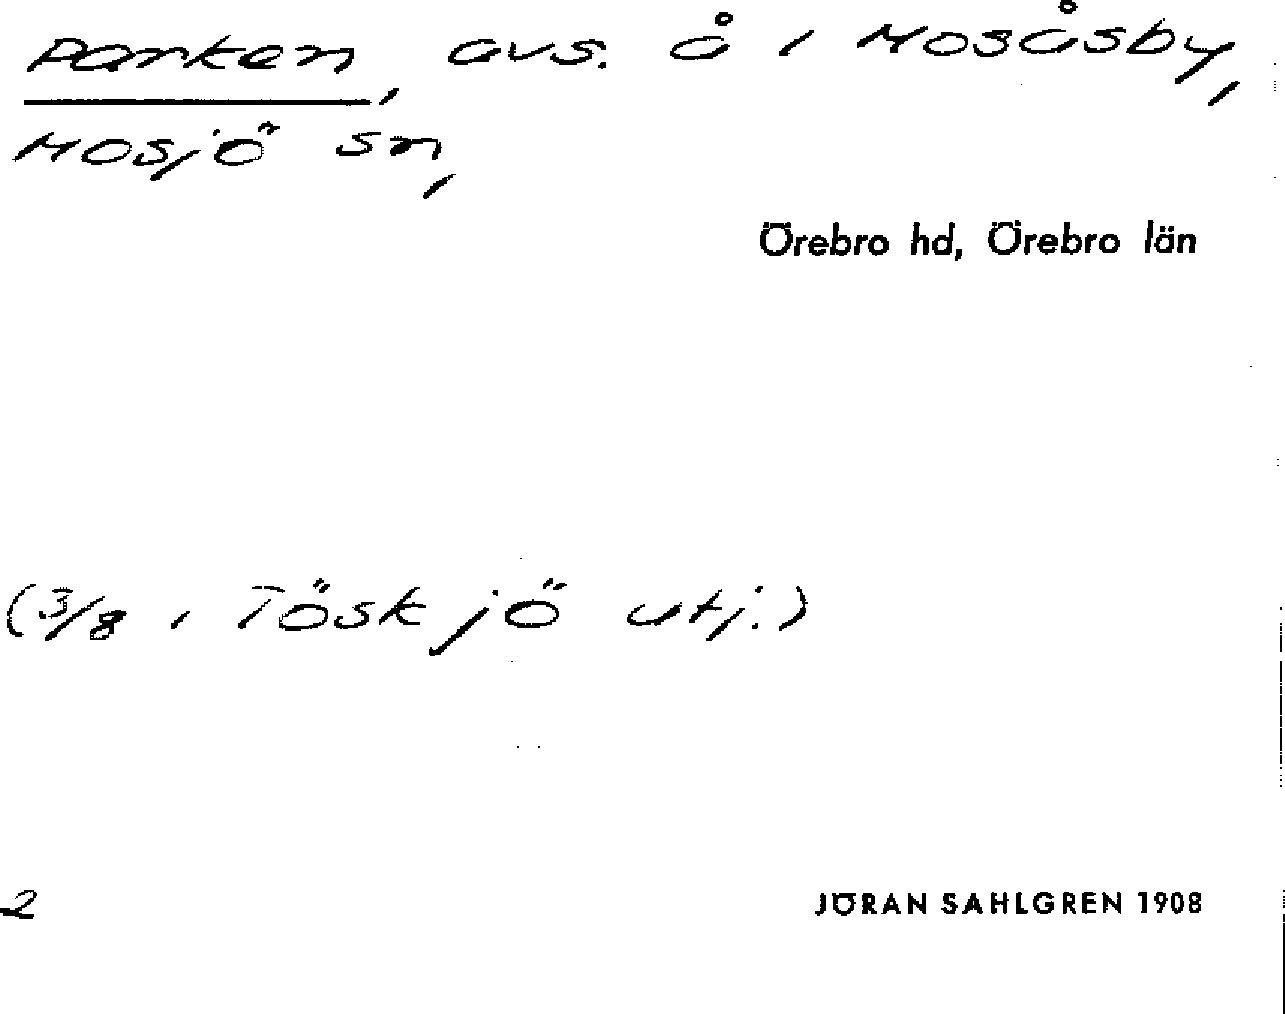 Parken, avs. å i Mosåsby,
Mosjö sn,
Örebro hd, Örebro län
(3/8 i Töskjö utj.)
2
JÖRAN SAHLGREN 1908